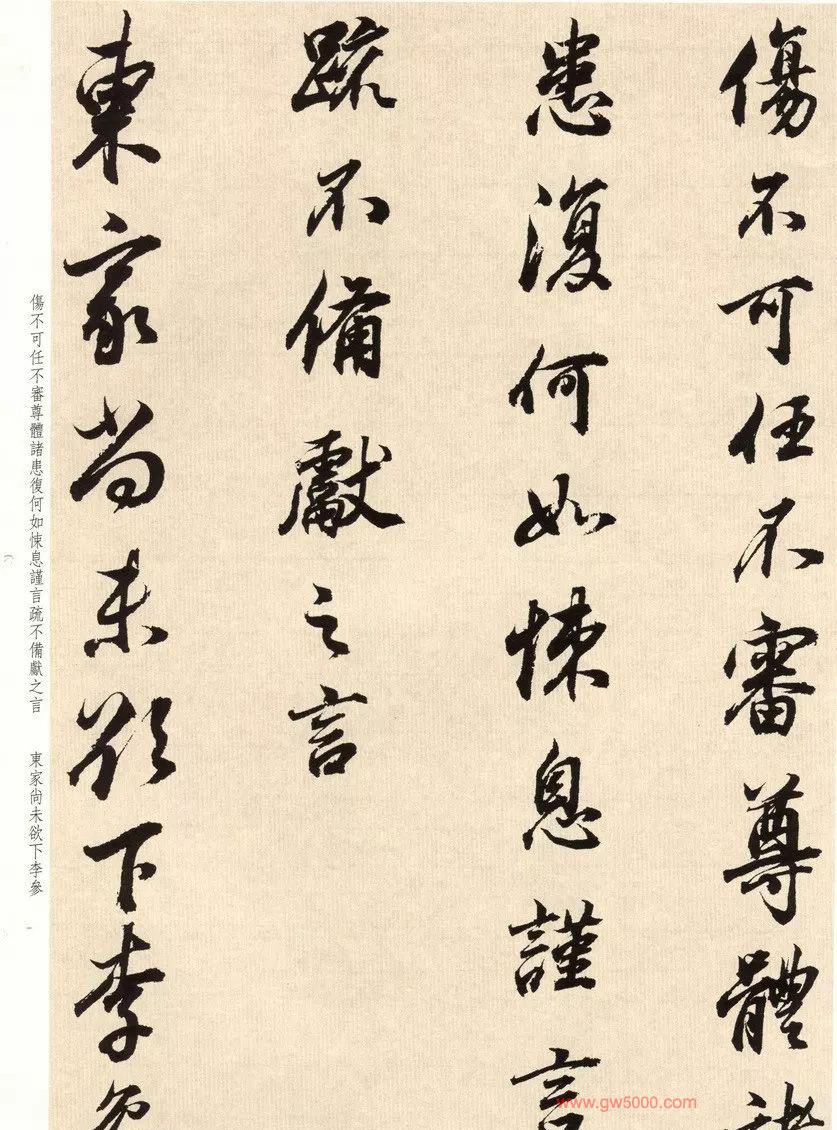 傷不可任不審尊體諸
患復何如悚息謹言
疏不備獻之言
東家尚未欲下李參
傷不可任不審尊體諸患復何如悚息謹言疏不備獻之言
東家尚未欲下李參
www.gw5000.com